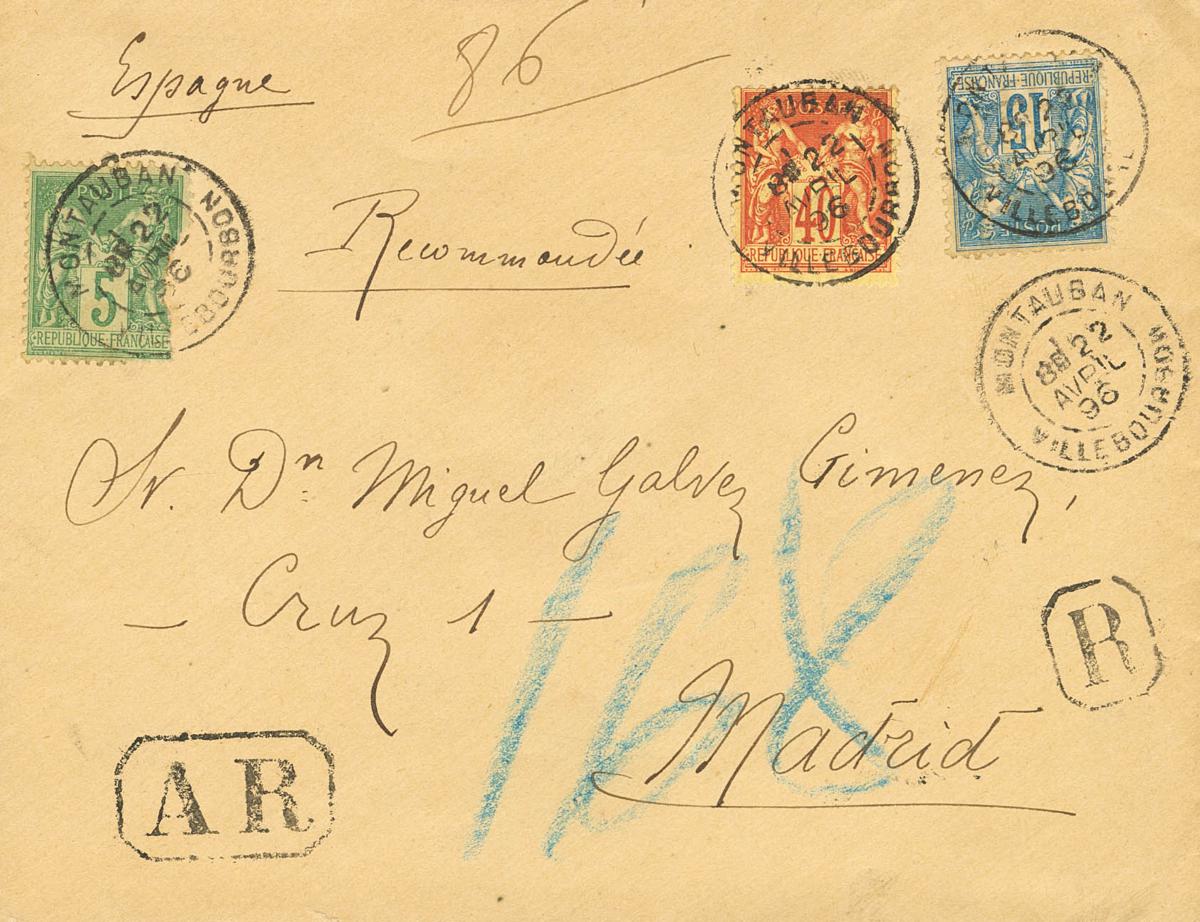 Espagne
86
Recommandée
REPUBLIQUE FRANÇAISE
5
MONTAUBAN
22
AVRIL
96
VILLEBOURBON
40
REPUBLIQUE FRANÇAISE
MONTAUBAN
22
AVRIL
96
VILLEBOURBON
REPUBLIQUE FRANÇAISE
15
POSTES
22
AVRIL
96
VILLEBOURBON
MONTAUBAN
22
AVRIL
96
VILLEBOURBON
Sr. Dn Miguel Galvez Gimenez,
— Cruz 1 —
Madrid
168
R
AR